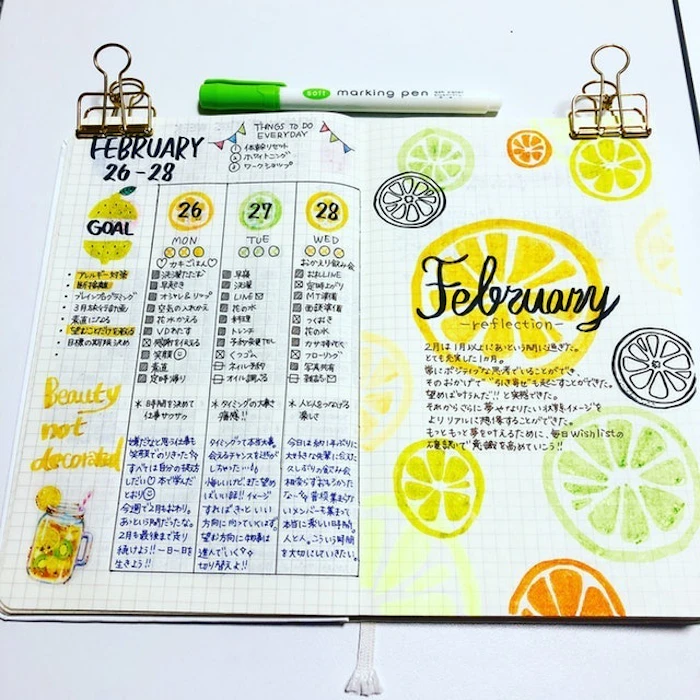 soft marking pen
FEBRUARY
26-28
THINGS TO DO
EVERYDAY
① 体幹リセット
② ホワイトニング
③ ワークショップ
GOAL
アレルギー対策
断捨離
ブレインプログラミング
3月旅行計画
素直になる
望むことだけを観る
目標の期限決め
Beauty
not
decorated
26
MON
♡カキごはん♡
洗濯たたむ
早起き
オシャレ&リップ
空気の入れかえ
花水かえる
VDわたす
感謝を伝える
笑顔
素直
定時帰り
* 時間を決めて
仕事サクサク
嫌だなと思う仕事も
笑顔でのりきった
すべては自分の捉え方
しだい♡本で学んだ
とおり
今週で2月もおわり。
あっという間だったな。
2月も最後まで走り
続けよう!!一日一日を
生きよう!!
27
TUE
早寝
洗濯
LINE
花の水
料理
トレンチ
予約・来店TEL
くつゴム
ネイル予約
オイル調べる
* タイミングの大事さ
痛感!!
タイミングって本当大事
会えるチャンスを逃が
しちゃった…
悔しいけど、また望め
ばいい話!!イメージ
すればきっといい
方向に向っていくはず。
望む方向に物事は
進んでいく
切り替えよ!!
28
WED
おかえり飲み会
お礼LINE
定時上がり
MT準備
面談準備
つくおき
花の水
カサ持ち
フローリング
写真共有
雑誌
* 人と人をつなげる
楽しさ
今日は約1年ぶりに
大すきな先輩に会えた
久しぶりの飲み会
相変らずおもしろかった
な〜
普段集まらな
いメンバーも集まって
本当に楽しい時間。
人と人。こういう時間
を大切にしていきたい。
February
-reflection-
2月は1月以上にあっという間に過ぎた。
とても充実した1ヵ月。
常にポジティブな思考でいることができ、
そのおかげで"引き寄せ"も起こすことができた。
望めば叶うんだ!!と実感できた。
それからさらに夢やなりたい状態イメージを
よりリアルに想像することができた。
もっともっと夢を叶えるために、毎日Wishlistの
確認で意識を高めていこう!!